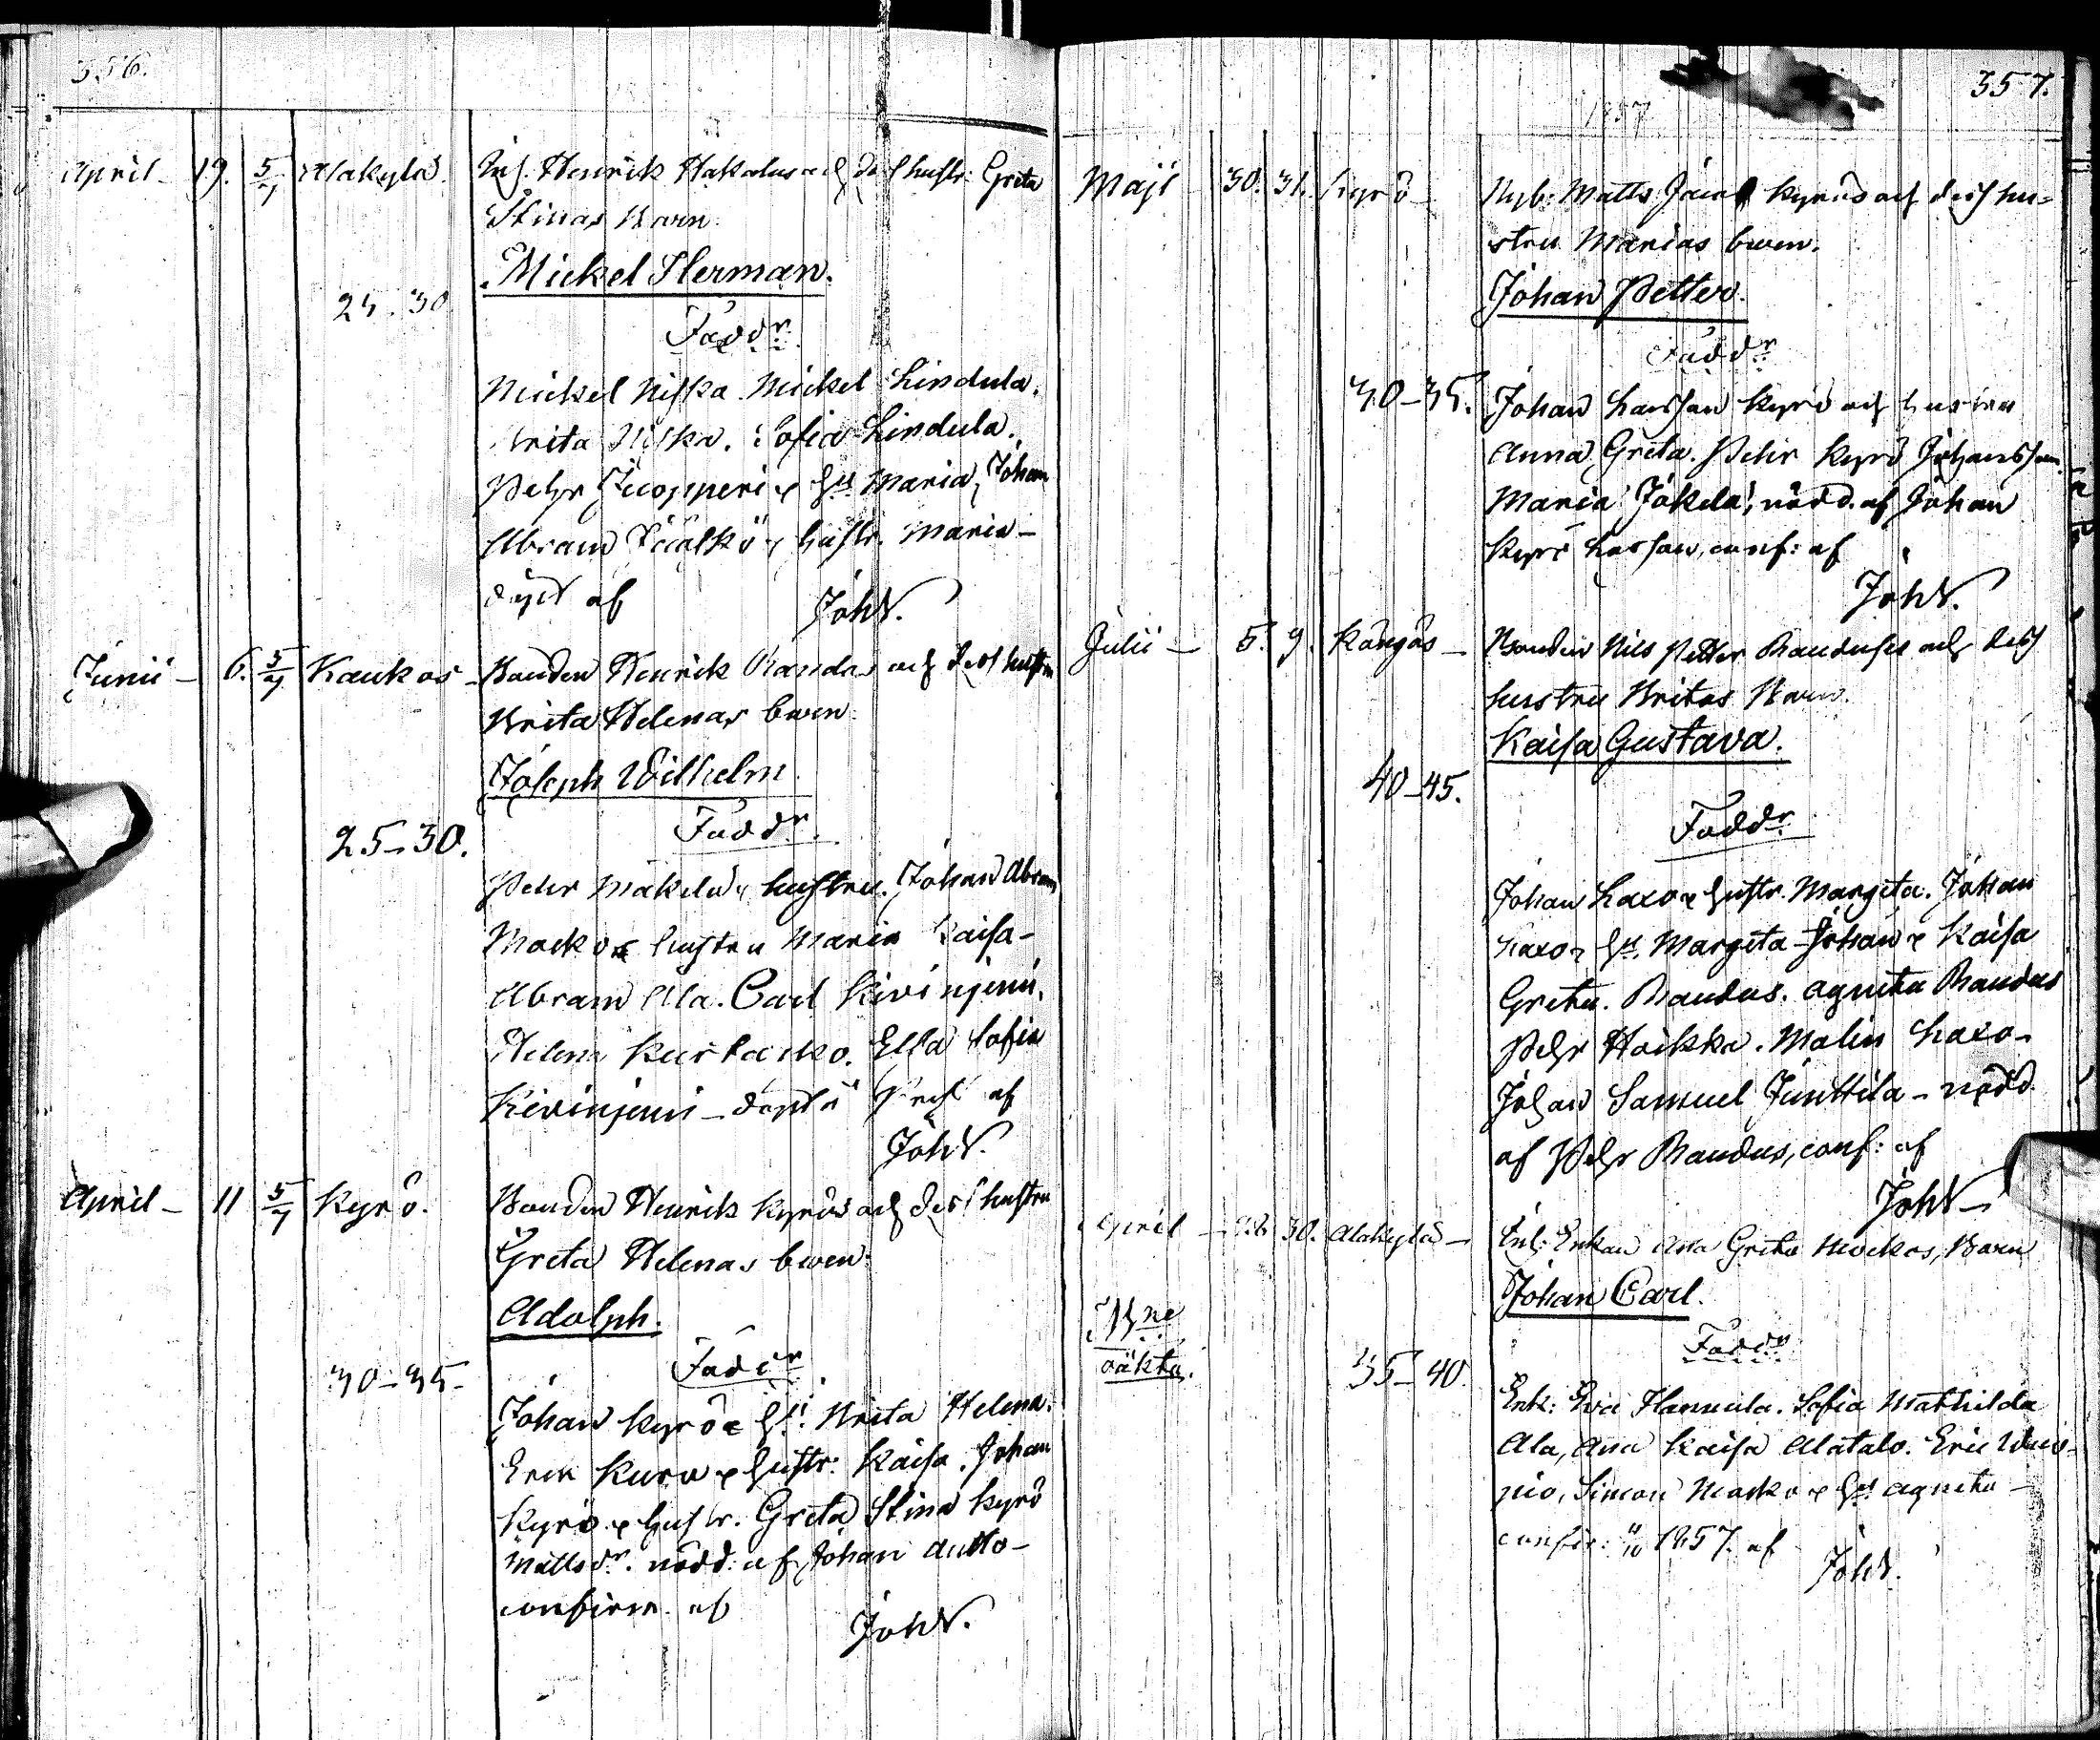 356.
April - 19. 5/7 Alakylä. Inh. Henrik Hakalus och dess hustr: Greta
Stinas Barn
Mickel Herman.
25-30
Faddr
Mickel Niska Mickel Lindula.
Brita Niska. Sofia Lindula.
Pehr & Hu Maria, Johan
Abram & hustr. Maria -
döpt af
Joh W.
Junii - 6. 5/7 Kaukos - Bonden Henrik Randas och dess hustru
Brita Helenas barn
Joseph Wilhelm.
25-30.
Faddr.
Pehr Mäkelä & hustru. Johan Abram
Marko & hustru Maria Kaisa -
Abram Ala. Carl Kivinjemi.
Helena Ella Sofia
Kivinjemi - döpta af
Joh W.
April - 11 5/7 Kyrö. Bonden Henrik Kyrös och dess hustru
Greta Helenas barn
Adolph.
30-35-
Faddr
Johan Kyrö & Hu: Brita Helena.
Erik Kuru & Hustr: Kaisa. Johan
Kyrö & Hustr. Greta Stina Kyrö
Mattsdr. nödd: af Johan Autto -
confirm. af
Joh W.
357.
1857
Maji 30. 31. Kyrö - Nyb: Matts Kyrös och dess hu-
stru Marias barn.
Johan Petter.
Faddr
30-35. Johan Larsson Kyrö och hustru
Anna Greta. Pehr Kyrö Johansson
Maria Jokela, nödd. af Johan
Kyrö Larsson, conf: af
Joh W.
Julii - 5. 9. Kångos - Bonden Nils Petter Baudus och dess
hustru Britas Barn.
Kaisa Gustava.
40-45.
Faddr
Johan Laxo & Hustr. Margeta. Johan
Laxo & Hu. Margeta - Johan & Kaisa
Greta. Baudus. Agneta Baudus
Pehr Hoikka. Malin Laxo -
Johan Samuel Junttila - nödd
af Pehr Baudus, conf: af
Joh W -
April - 30. Alakylä - Enkan Ana Greta Barn
Johan Carl.
oäkta.
Faddr
35-40.
Enk: Eva Hannula. Sofia Mathilda
Ala, Ana Kaisa Alatalo. Eric
Simon Marko & Hu Agneta -
1857. af
Joh W.